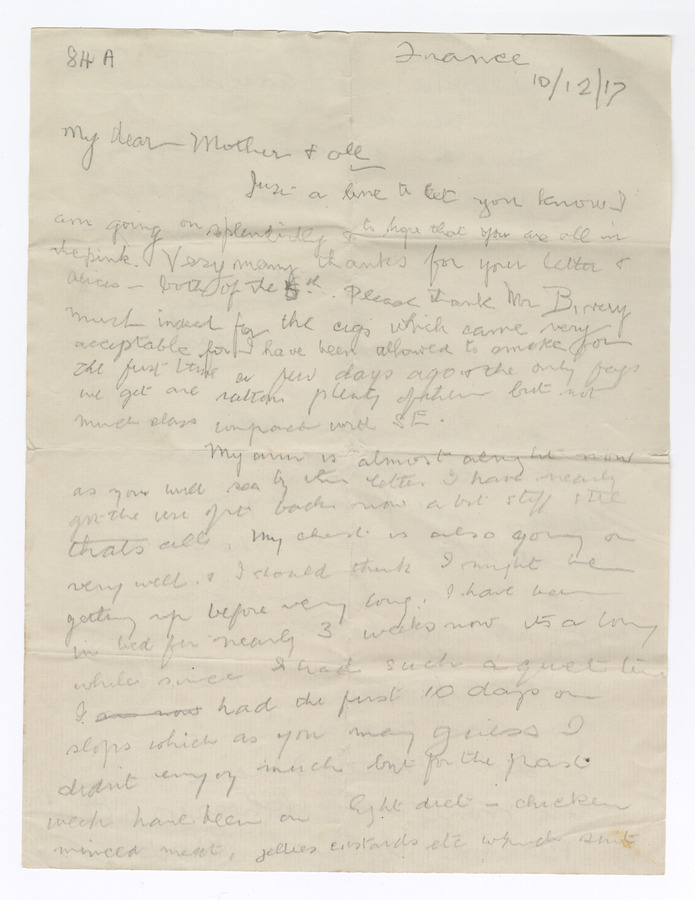 84 A
France
10/12/17
My dear Mother & all
Just a line to let you know I
am going on splendidly & to hope that you are all in
the pink. Very many thanks for your letter &
Alices – both of the 5th. Please thank Mr B. very
much indeed for the cigs which came very
acceptable for I have been allowed to smoke for
the first time a few days ago & the only fags
we get are rations plenty of them but not
much class compared with SE.
My arm is almost alright now
as you will see by this letter I have nearly
got the use of it back now a bit stiff still
thats all. My chest is also going on
very well & I should think I might be
getting up before very long. I have been
in bed for nearly 3 weeks now its a long
while since I had such a quiet
I had the first 10 days on
slops which as you may guess I
didn't enjoy much but for the past
week have been on light diet – chicken
minced meat, jellies custards etc which suit